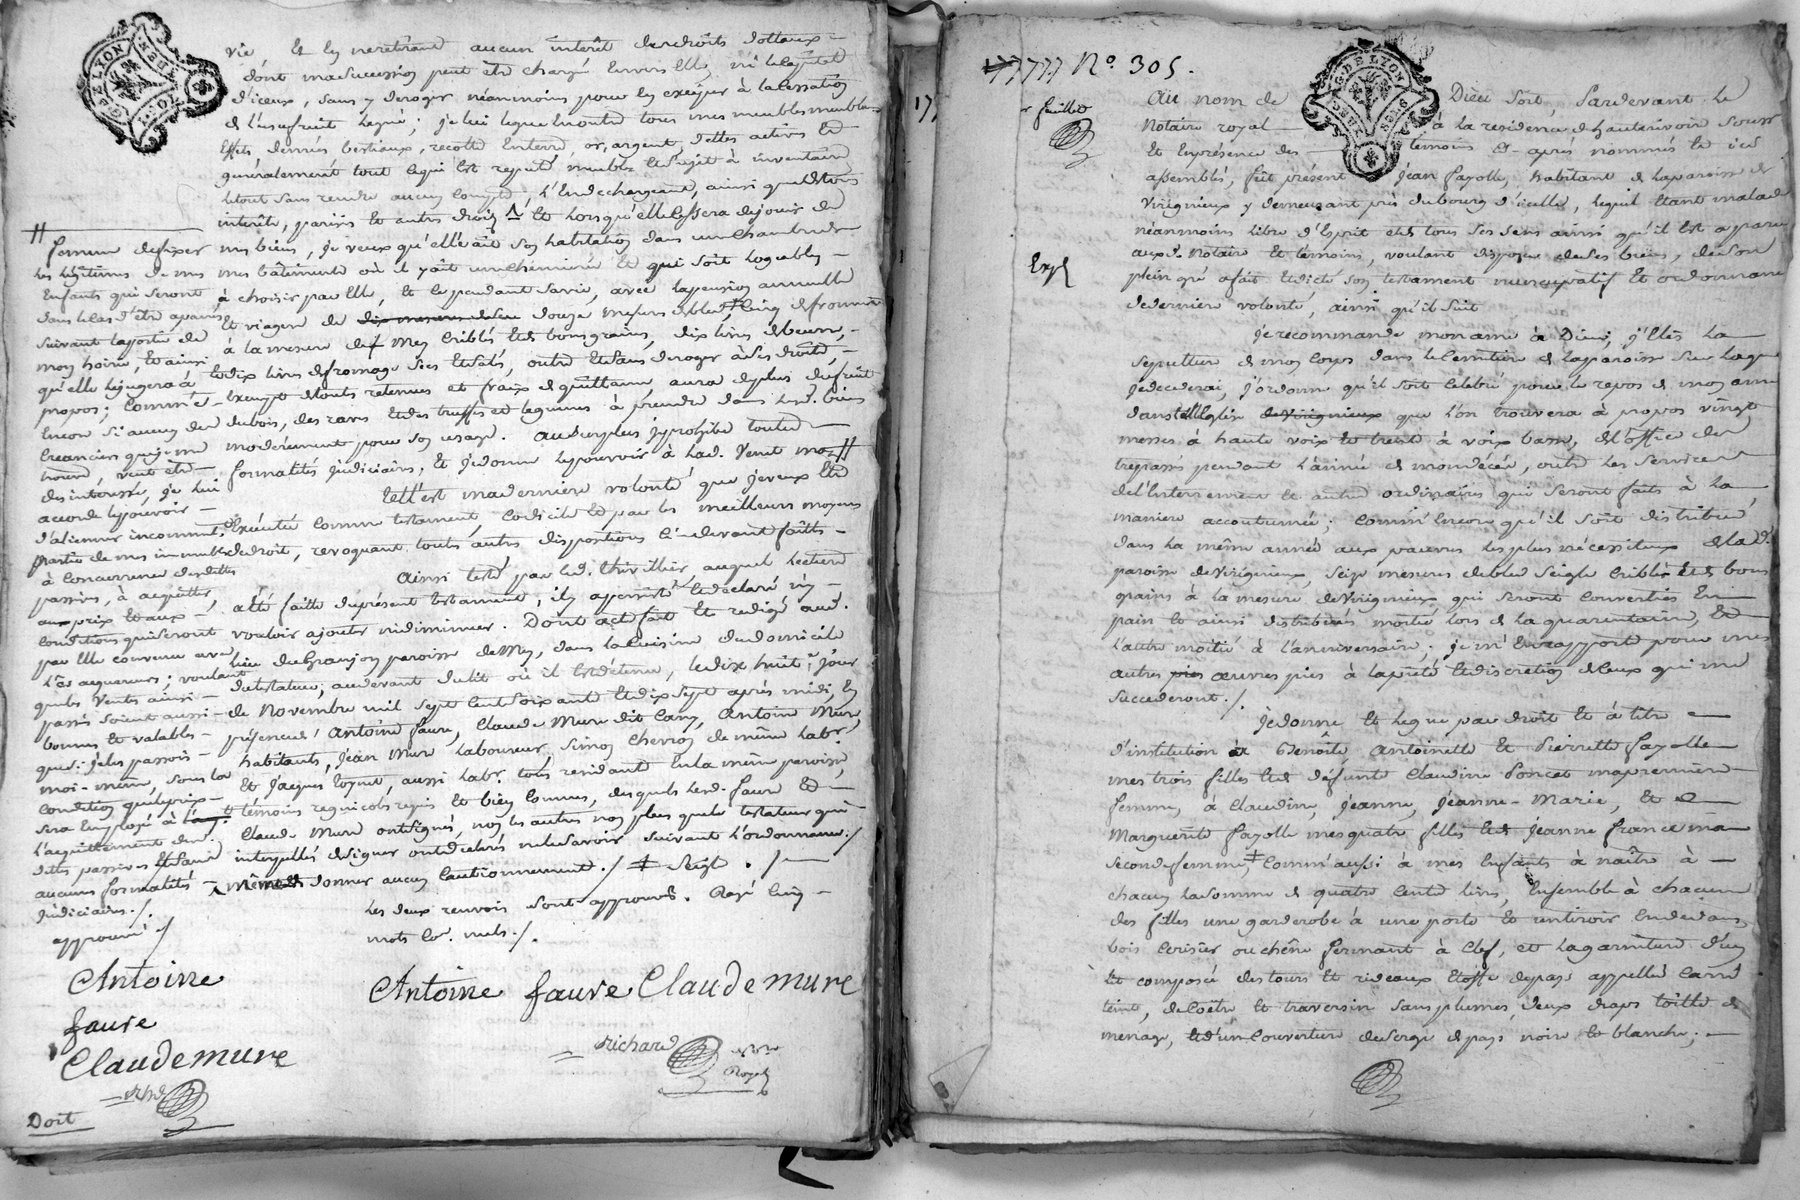 G. DE LYON
vie et en retirant aucun intérêt des droits dottaux
dont ma succession peut etre chargé envers elle, ni le capital
d'iceux, sans y deroger néanmoins pour les exiger à la cessation
de l'usufruit legué; je lui legue encore tous mes meubles meublans
effets denrées bestiaux, recolte enterre, or, argent, dettes actives et
généralement tout ce qui est reputé meuble et sujet à inventaire
le tout sans rendre aucun compte, l'en dechargeant, ainsi que de tous
interêts, pariers et autres droits et lorsqu'elle cessera de jouir de
mes biens, je veux qu'elle ait son habitation dans une chambre de
mes bâtiments où il y ait une cheminée et qui soit logeable,
à choisir par elle, et ce pendant sa vie, avec la pension annuelle
et viagere de douze mesures de bled, cinq de froment
à la mesure de Mey criblés et de bons grains, dix livres de beurre,
et dix livres de fromage secs et salés, outre et sans deroger à ses droits,
exempt de touts retenues et fraix de quittance, aura de plus du fruit
du bois, des raves et des truffes et legumes à prendre dans lesd. biens
moderément pour son usage. Au surplus je prohibe toutes
formalités judiciaires, et je donne le pouvoir à lad. Venet ma
//
femme de fixer
les légitimes de mes
enfants qui seront
dans le cas d'etre apanés
suivant la portée de
mon hoirie, et ainsi
qu'elle le jugera à
propos; comm'è
encore si aucun des
creanciers qui je me
trouve, veut etre
desinteressé, je lui
accorde le pouvoir
d'aliener incommut.
partie de mes immeubles
à concurrence des dettes
passives, à acquitter
aux prix et aux
conditions qui seront
par elle convenue avec
l'es acquereurs; voulant
que les ventes ainsi
passés soient aussi
bonnes et valables
que si je les passois
moi-même, sous la
condition que le prix
sera employé à
l'acquittement des
dettes passives et sans
aucunes formalités
judiciaires./.
approuvé ./
tell'est ma derniere volonté que je veux etre
exécutée comme testament, codicile et par les meilleurs moyens
de droit, revoquant touts autres dispositions ci-devant faittes
Ainsi testé par led. Thivillier auquel lecture
a été faitte du présent testament, il y a persisté et declaré n'y
vouloir ajouter ni diminuer. Dont acte fait et redigé aud.
lieu du Granjon paroisse de Mey, dans la cuisine du domicile
du testateur, au devant du lit où il est détenu, le dix huite. jour
de Novembre mil sept cent soixante et dix sept après midi, en
présence d'Antoine faure, Claude Mure dit Cany, Antoine Mure,
habitants, Jean Mure laboureur, Simon Chevron de même labr.
et Jacques Loynet, aussi labr. tous residant en la même paroisse,
témoins regnicoles requis et bien connus, desquels lesd. faure et
Claude Mure ont signés, non les autres non plus que le testateur qui
interpellés de signer ont declarés ne le savoir suivant l'ordonnance./
même de donner aucun cautionnement ./ ‡ seigle ./
les deux renvois sont approuvés. Rayé cinq
mots co. nuls./.
Antoine
faure
Claudemure
Antoine faure Claudemure
Richard
nore Royal
Doit
1777 No. 305.
feuillet
Exp.
G. DE LYON
Au nom de Dieu soit Pardevant le
Notaire royal à la residence de hauterivoire soussé
et en présence des temoins ci-aprés nommés et icd
assemblés, fût présent Jean fayolle, habitant de la paroisse de
Virigneux y demeurant prés du bourg d'icelle, lequel étant malade
néanmoins libre d'esprit et de tous ses sens ainsi qu'il est apparu
auxd. Notaire et témoins, voulant disposer de ses biens, de son
plein gré a fait et dicté son testament nuncupatif et ordonnance
de derniere volonté, ainsi qu'il suit
Je recommande mon ame à Dieu, j'élis la
sepulture de mon corps dans le cimetiere de la paroisse sur laque
je decederai, j'ordonne qu'il soit celebré pour le repos de mon ame
dans l'eglise de Virigneux que l'on trouvera à propos vingt
messes à haute voix et trente à voix basse, et l'office des
trepassés pendant l'année de mon décés, outre les services
de l'enterrement et autres ordinaires qui seront faits à la
maniere accoutumée; comm'encore qu'il soit distribué
dans la même année aux pauvres les plus nécessiteux de lad.
paroisse de Virigneux, seize mesures de bled seigle criblé et de bons
grains à la mesure de Virigneux qui seront converties en
pain et ainsi distribuées moitié lors de la quarantaine, et
l'autre moitié à l'anniversaire; je m'en rapporte pour mes
autres pies œuvres pies à la piété et discretion de ceux qui me
succederont./
Je donne et legue par droit et à titre
d'institution à Benoîte, Antoinette et Pierrette fayolle
mes trois filles et de défunte Claudine Poncet ma premiere
femme, à Claudine, Jeanne, Jeanne-Marie, et
Marguerite fayolle mes quatre filles et de Jeanne France ma
seconde femme, comm'aussi à mes enfants à naître à
chacun la somme de quatre cents livres, ensemble à chacune
des filles une garderobe à une porte et un tiroir en dedans,
bois cerisier ou chêne fermant à clef, et la garniture d'un
lit composé des tours et rideaux étoffe de pays appellée carré
teint, de coëtre et traversin sans plumes, deux draps toille de
menage, et d'un couverture de serge de pays noire et blanche;